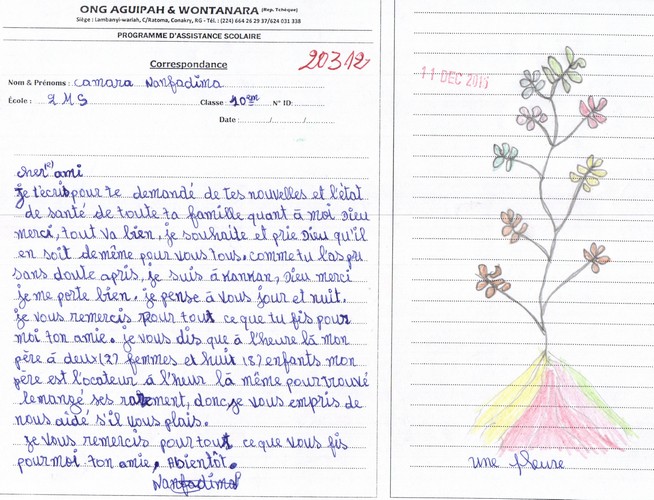 ONG AGUIPAH & WONTANARA (Rep. Tchèque)
Siège : Lambanyi-wariah, C/Ratoma, Conakry, RG - Tél. : (224) 664 26 29 37/624 031 338
PROGRAMME D'ASSISTANCE SCOLAIRE
Correspondance
20312
Nom & Prénoms : Camara Nanfadima
École : 2 M S Classe : 10em N° ID:
Date : / /
cher(e) ami
je t'ecris pour te demandé de tes nouvelles et l'état
de santé de toute ta famille quant à moi Dieu
merci, tout va bien, je souhaide et prie Dieu qu'il
en soit demême pour vous tous. comme tu l'as pu
sans doute apris, je suis à Kankan, Dieu merci
je me porte bien. je pense à vous jour et nuit.
je vous remercis pour tout ce que tu fis pour
moi ton amie. je vous dis que à l'heure là mon
père à deux (2) femmes et huit (8) enfants mon
père est l'ocateur à l'huur là même pour trouvé
lemangé ses rarement, donc je vous empris de
nous aidé s'il vous plais.
je vous remercis pour tout ce que vous fis
pour moi ton amie. Abientôt.
Nanfadima
11 DEC 2015
une fleure